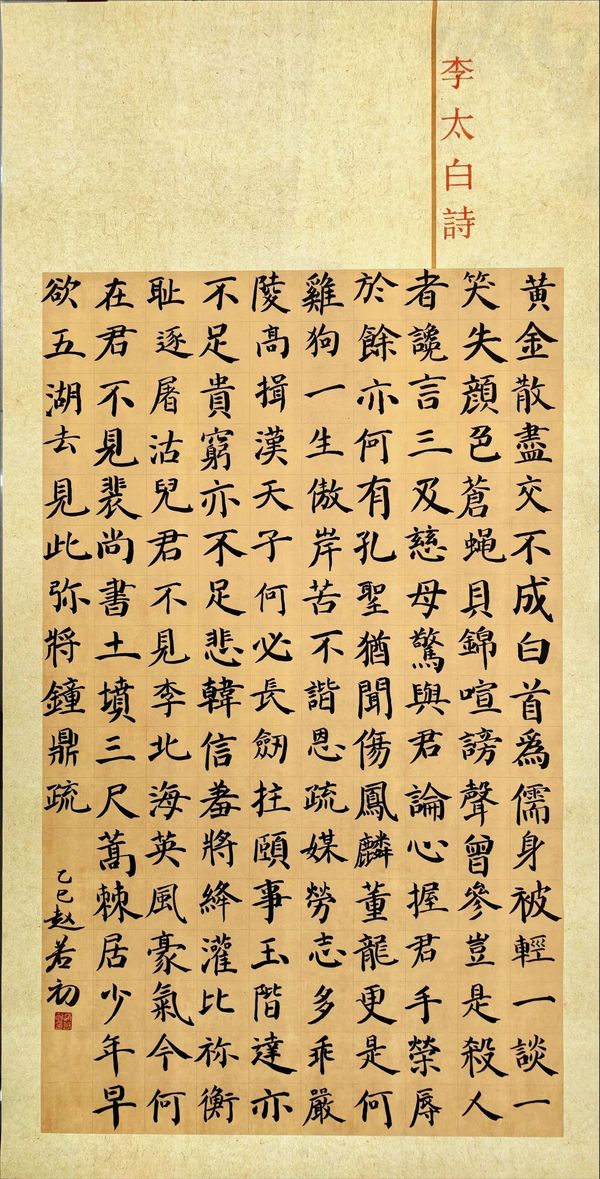 李太白詩
黄金散盡交不成白首爲儒身被輕一談一
笑失顔色蒼蝇貝錦喧謗聲曾參豈是殺人
者讒言三及慈母驚與君論心握君手榮辱
於餘亦何有孔聖猶聞傷鳳麟董龍更是何
雞狗一生傲岸苦不諧恩疏媒勞志多乖嚴
陵高揖漢天子何必長劒拄頤事玉階達亦
不足貴窮亦不足悲韓信羞將絳灌比祢衡
耻逐屠沽兒君不見李北海英風豪氣今何
在君不見裴尚書土墳三尺蒿棘居少年早
欲五湖去見此弥將鐘鼎疏
乙巳赵若初